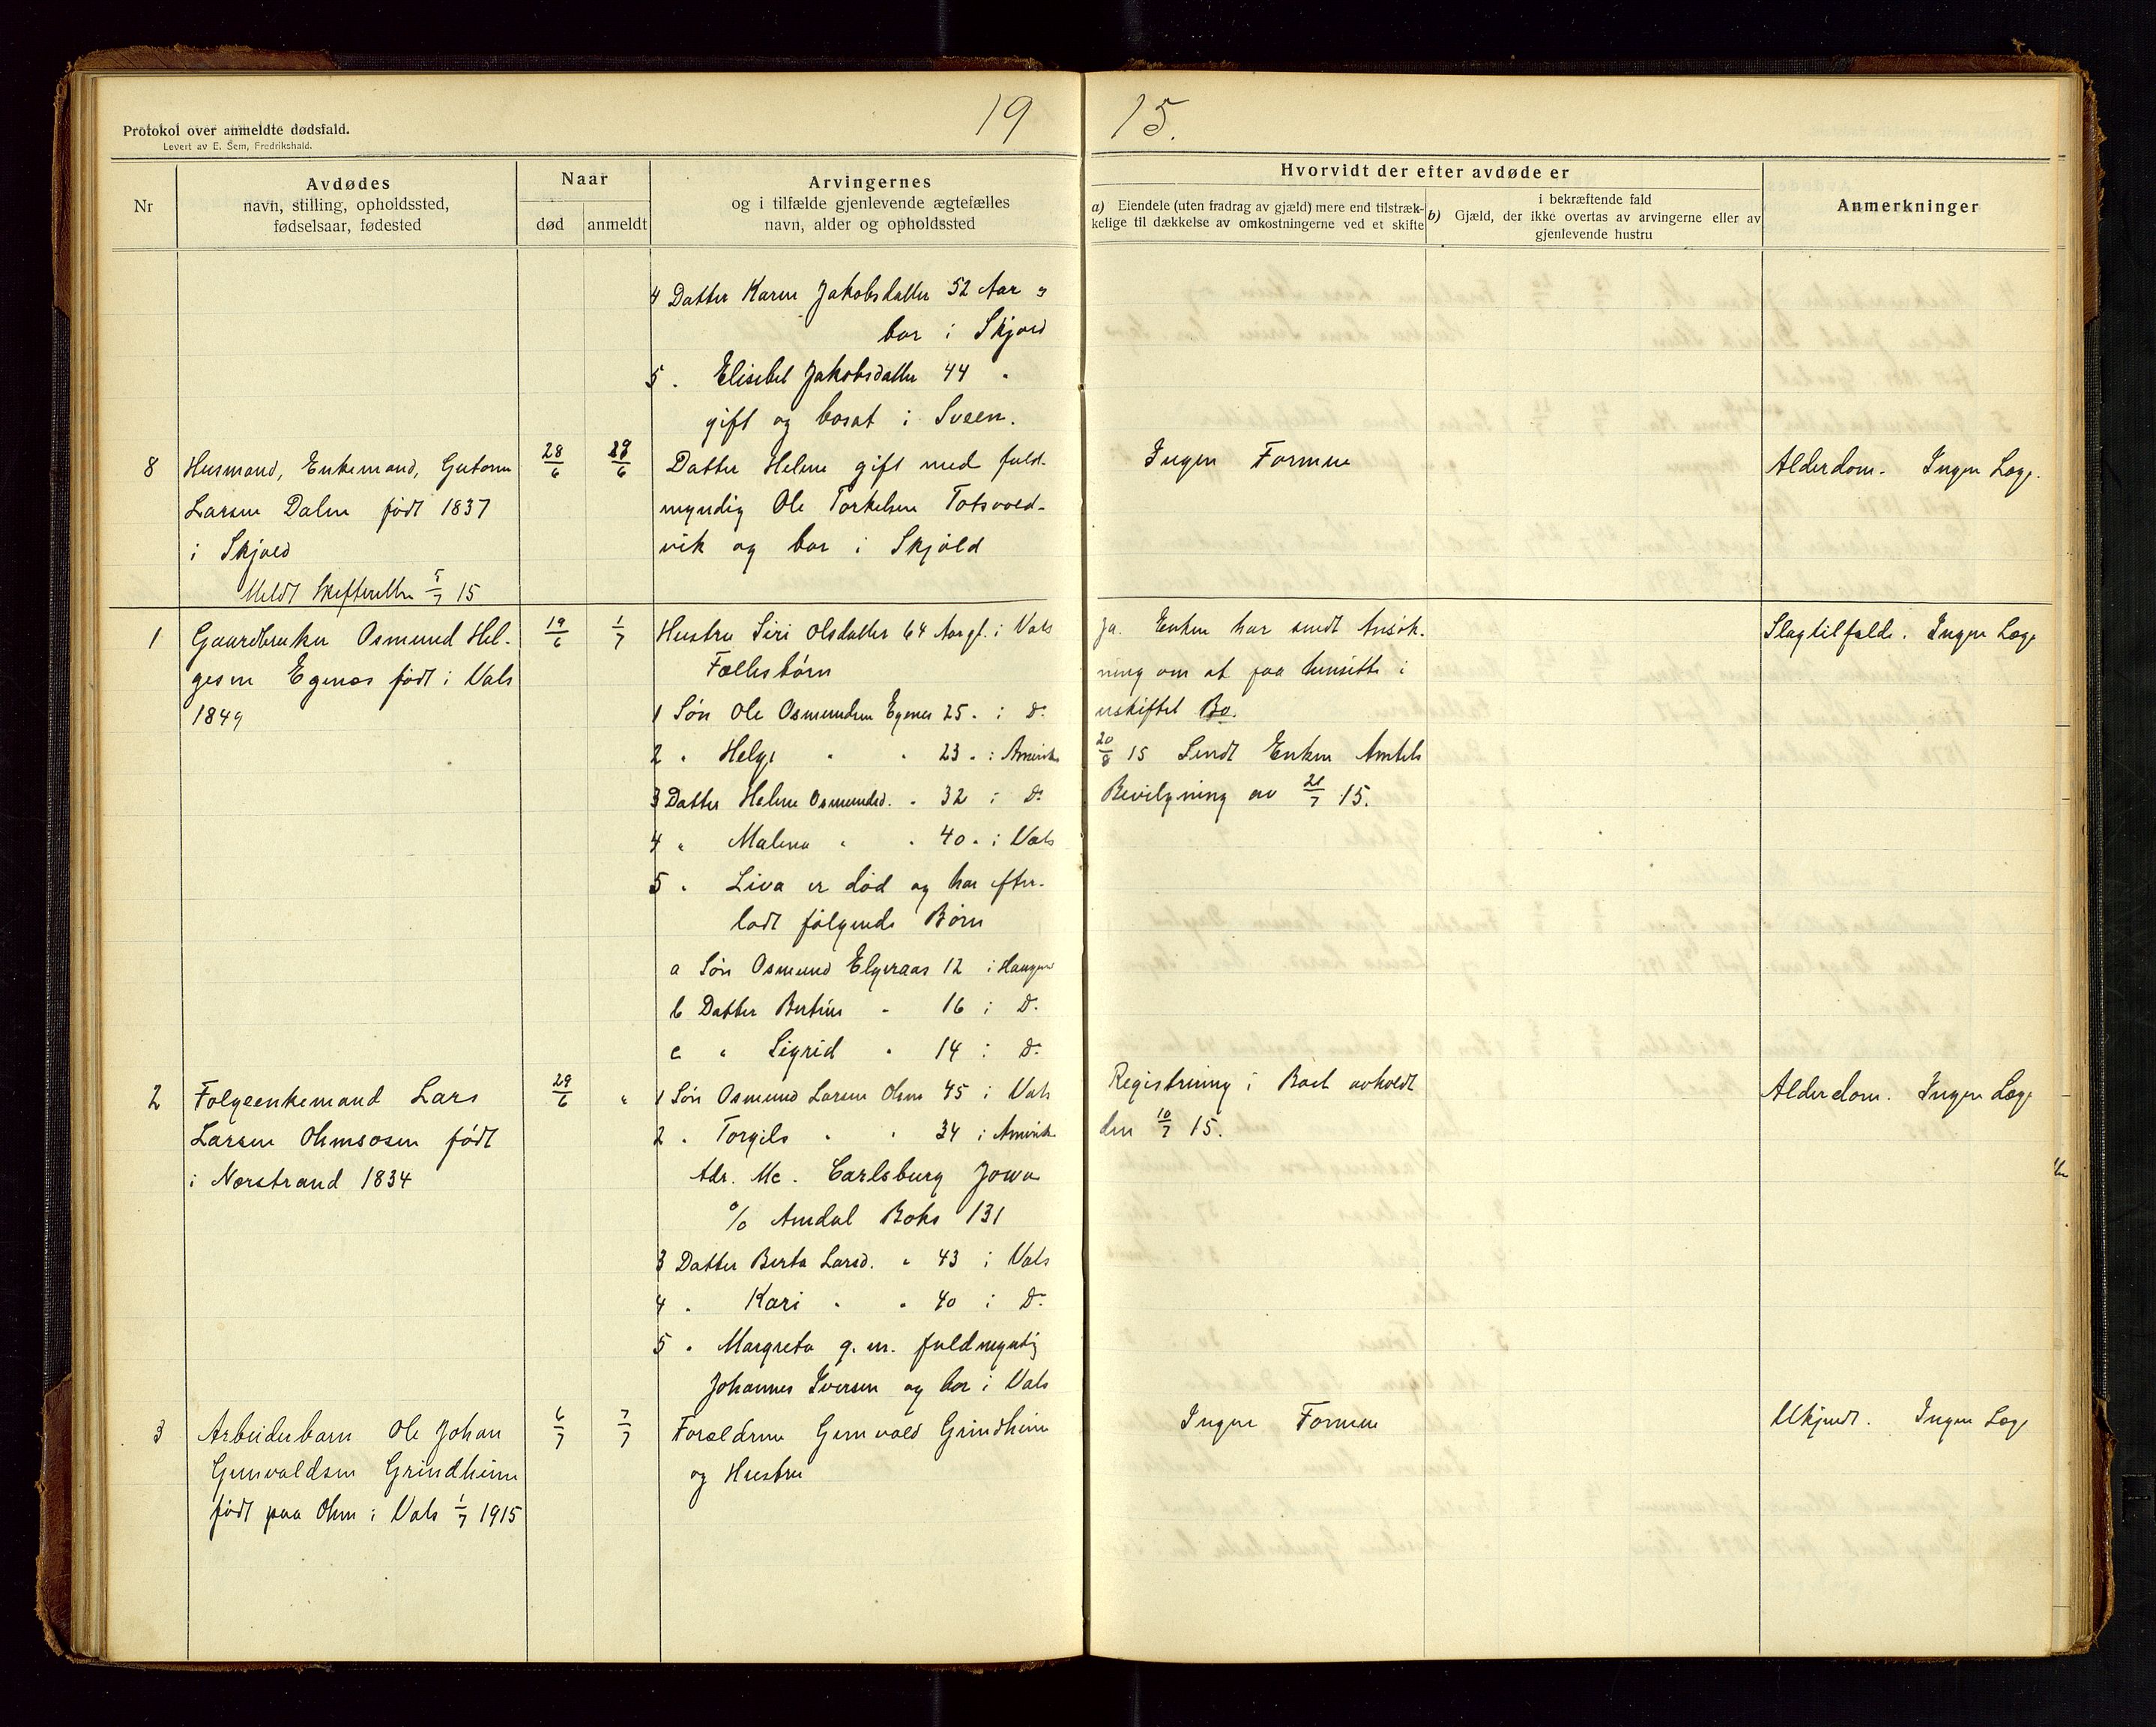 19 15.
Protokol over anmeldte dødsfald.
Levert av E. Sem, Fredrikshald.
Nr
Avdødes
navn, stilling, opholdssted,
fødselsaar, fødested
Naar
død
anmeldt
Arvingernes
og i tilfælde gjenlevende ægtefælles
navn, alder og opholdssted
Hvorvidt der efter avdøde er
a) Eiendele (uten fradrag av gjæld) mere end tilstræk-
kelige til dækkelse av omkostningerne ved et skifte
i bekræftende fald
b) Gjæld, der ikke overtas av arvingerne eller av
gjenlevende hustru
Anmerkninger
4 Datter Karen Jakobsdatter 52 Aar og
bor i Skjold
5 " Elisebet Jakobsdatter 44 "
gift og bosat i Sveen.
8 Husmand, Enkemand, Gutorm
Larsen Dalen født 1837
i Skjold
Meldt Skifteretten 5/7 15
28/6
29/6
Datter Helene gift med fuld-
myndig Ole Torkelsen
vik og bor i Skjold
Ingen Formue
Alderdom. Ingen Læge.
1 Gaardbruker Osmund Hel-
gesen Egenæs født i Vats
1849
19/6
1/7
Hustru Siri Olsdatter 64 Aar gl. i Vats
Fællesbørn
1 Søn Ole Osmundsen Egenes 25 " i Do
2 " Helge " " 23 " i Amerika
3 Datter Helene Osmundsd. " 32 i Do
4 " Malena " " 40 " i Vats
5 " Liva er død og har efter-
ladt følgende Børn
a Søn Osmund Elgeraas 12 i Haugesd
b Datter Bertine " 16 i Do
c " Sigrid " 14 i Do
Ja. Enken har sendt Ansøk-
ning om at faa hensitte i
uskiftet Bo.
20/8 15 Sendt Enken Amtets
Bevilgning av 21/7 15.
Slagtilfælde. Ingen Læge
2 Folgeenkemand Lars
Larsen Ohmsosen født
i Norstrand 1834
29/6
"
1 Søn Osmund Larsen Ohm 45 i Vats
2 " Torgils " " 34 i Amerika
Adr. Mc. Carlsburg Jowa
% Amdal Boks 131
3 Datter Berta Larsd. " 43 i Vats
4 " Kari " " 40 i Do
5 " Margreta g. m. fuldmyndig
Johannes Iversen og bor i Vats
Registrering i Boet avholdt
den 10/7 15.
Alderdom. Ingen Læge
3 Arbeiderbarn Ole Johan
Gunvaldsen Grindheim
født paa Ohm i Vats 1/7 1915
6/7
7/7
Forældrene Gunvald Grindheim
og Hustru
Ingen Formue
Ukjendt. Ingen Læge